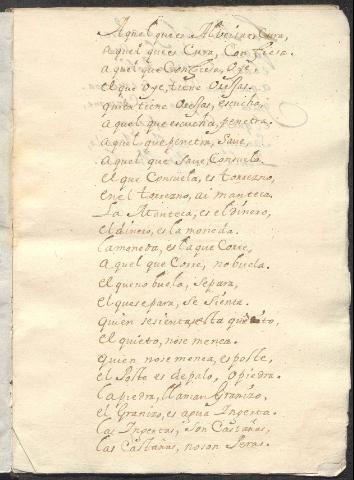 Aquel que es Albeitar, Cura,
aquel que es Cura, Confiesa.
aquel que Confiesa, Oye
el que Oye, tiene Orejas.
quien tiene Orejas, escucha,
aquel que escucha, penetra.
aquel que penetra, Save,
aquel que Save, Consuela
el que Consuela, es torrezno,
en el torrezno, ai manteca.
La Manteca, es el dinero,
el dinero, es la moneda.
la moneda, es la que Corre,
aquel que Corre, no buela.
el que no buela, se para,
el que se para, se Sienta.
quien se sienta esta quieto,
el quieto, no se menea.
quien no se menea, es poste,
el Poste es de palo, o piedra.
la piedra, llaman Granizo,
el Granizo, es agua
las son Castañas,
las Castañas, no son Peras.